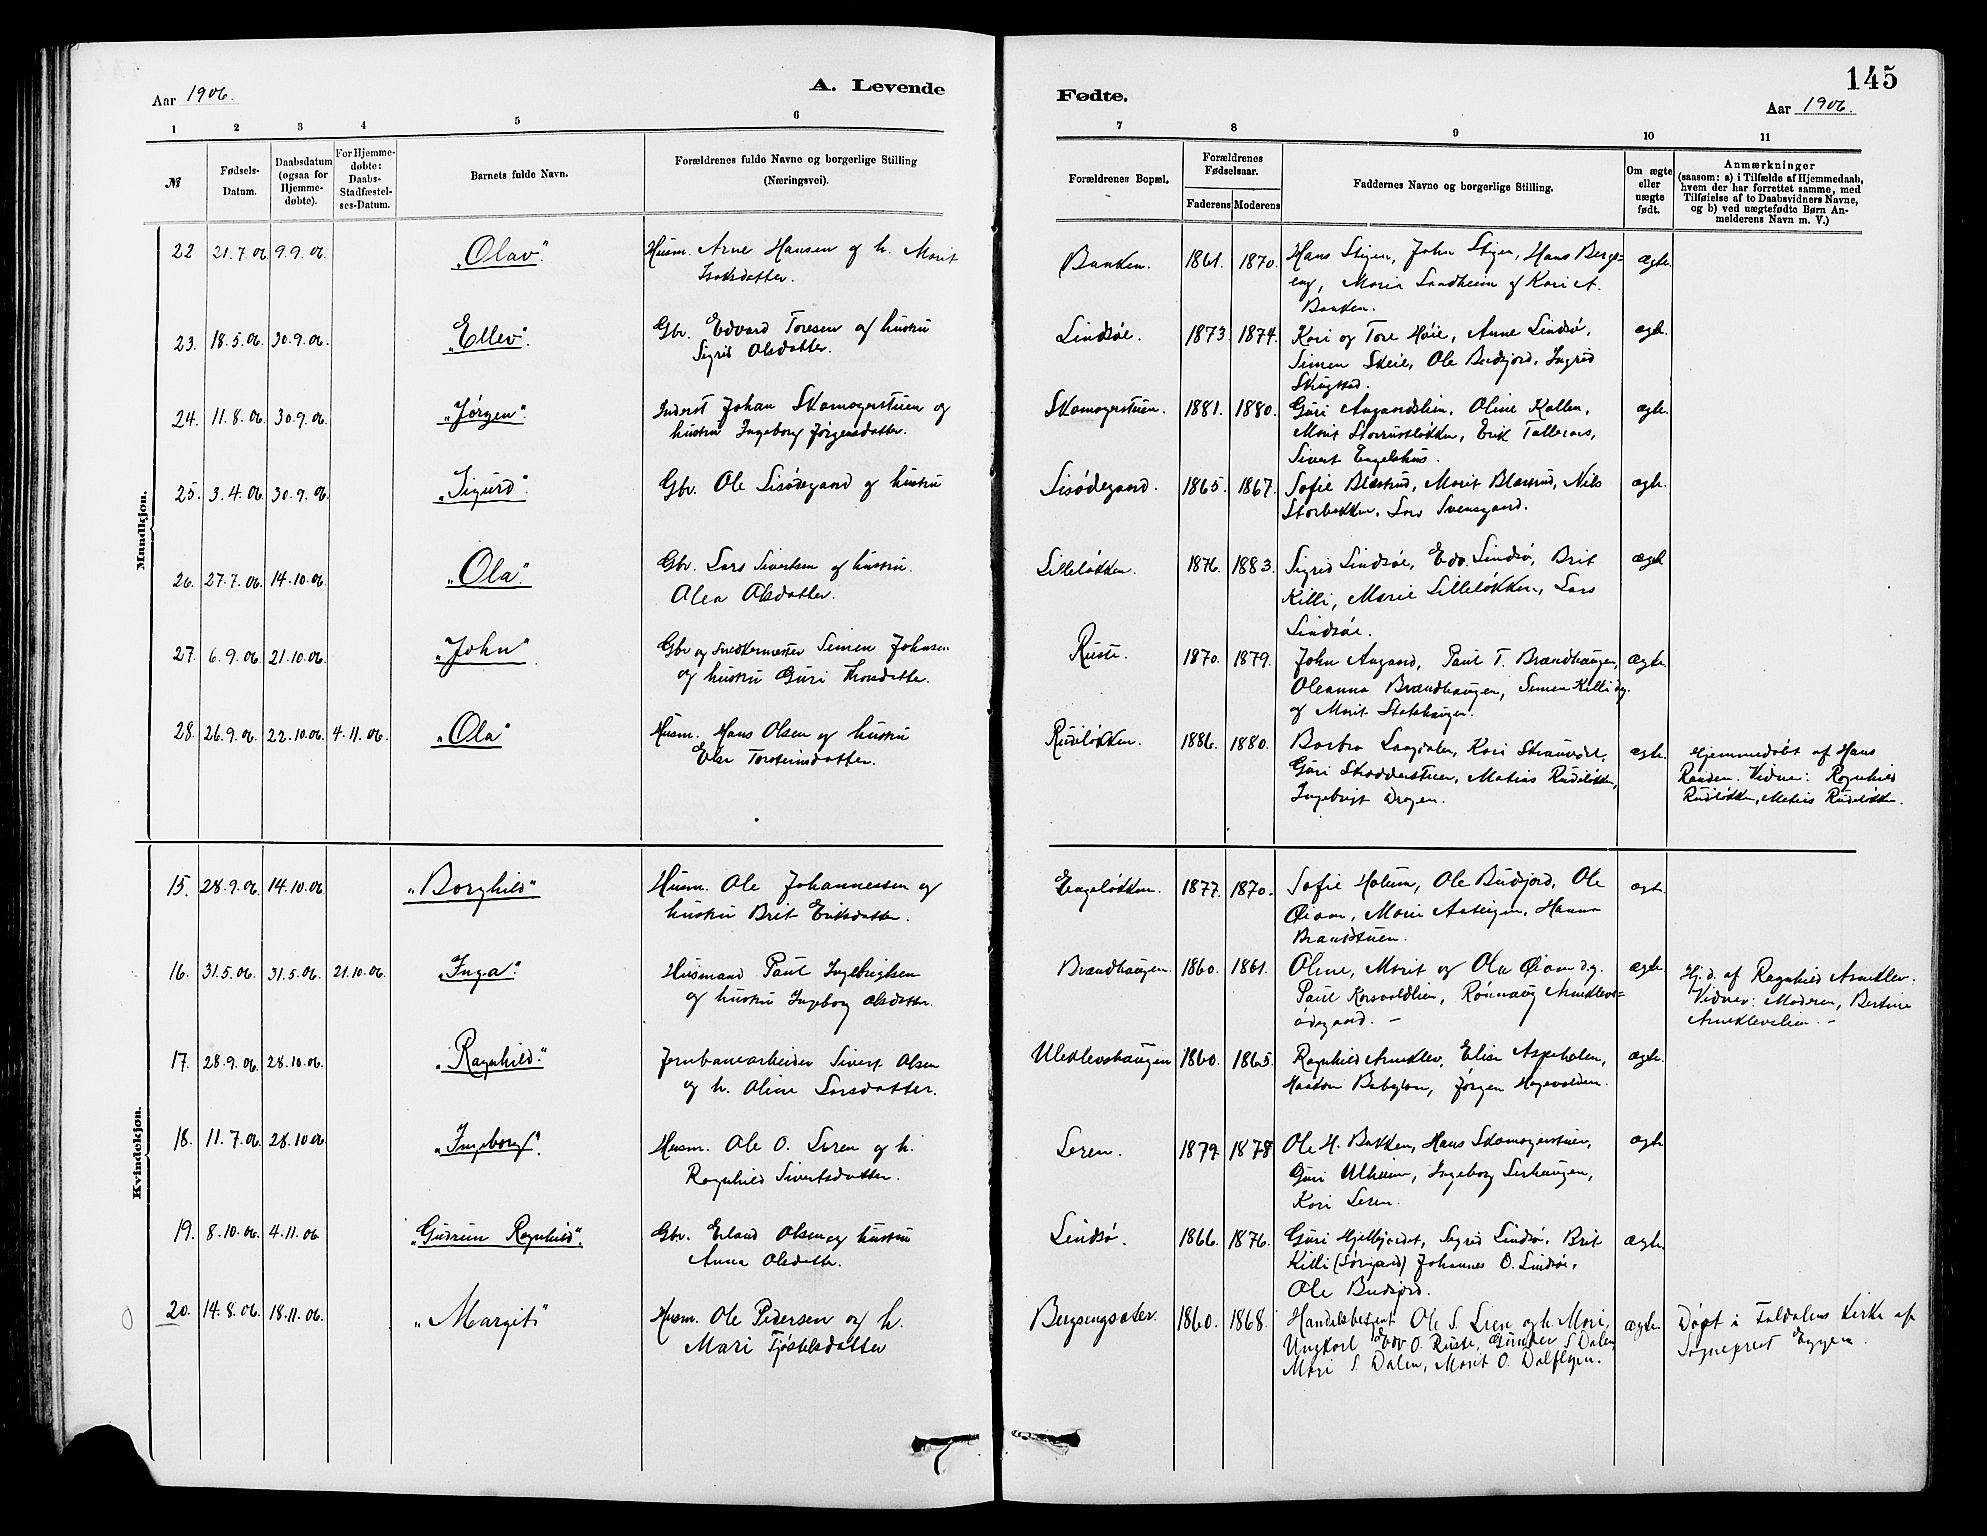 Aar 1906.
A. Levende
1 2 3 4 5 6
№
Fødsels-
Datum.
Daabsdatum
(ogsaa for
Hjemme-
døbte).
For Hjemme-
døbte:
Daabs-
Stadfæstel-
ses-Datum.
Barnets fulde Navn.
Forældrenes fulde Navne og borgerlige Stilling
(Næringsvei).
Mandkjøn.
22 21.7.06 9.9.06. "Olav". Husm. Arne Hansen og h. Marit
Isaksdatter.
23. 18.5.06. 30.9.06. "Ellev". Gbr. Edvard Toresen og hustru
Sigrid Olsdatter.
24. 11.8.06. 30.9.06. "Jørgen". Inderst Johan Skomagerstuen og
hustru Ingeborg Jørgensdatter.
25. 3.4.06. 30.9.06. "Sigurd". Gbr. Ole Lisødegaard og hustru
26. 27.7.06. 14.10.06. "Ola". Gbr. Lars Sivertsen og hustru.
Alea Olsdatter.
27 6.9.06. 21.10.06. "John". Gbr og Snedkermester Simen Johnsen
og hustru Guri Thorsdatter.
28. 26.9.06. 22.10.06. 4.11.06. "Ola" Husm. Hans Olsen og hustru
Eli Torsteinsdatter.
Kvindekjøn.
15. 28.9.06. 14.10.06 "Borghild" Husm. Ole Johannessen og
hustru Brit Eriksdatter.
16. 31.5.06. 31.5.06. 21.10.06. "Inga". Husmand Paul Ingebrigtsen
og hustru Ingeborg Olsdatter.
17. 28.9.06 28.10.06. "Ragnhild." Jernbanearbeider Sivert Olsen
og h. Oline Larsdatter.
18. 11.7.06. 28.10.06. "Ingeborg". Husm. Ole O. Leren og h.
Ragnhild Sivertsdatter.
19. 8.10.06. 4.11.06 "Gudrun Ragnhild". Gbr. Erland Olsen og hustru
Anna Olsdatter.
20. 14.8.06. 18.11.06. "Margit" Husm. Ole Pedersen og h.
Mari Tjøstelsdatter
145
Fødte.
Aar 1906.
7 8 9 10 11
Forældrenes Bopæl.
Forældrenes
Fødselsaar.
Faderens Moderens
Faddernes Navne og borgerlige Stilling.
Om ægte
eller
uægte
født.
Anmærkninger
(saasom: a) i Tilfælde af Hjemmedaab,
hvem der har forrettet samme, med
Tilføielse af to Daabsvidners Navne,
og b) ved uægtefødte Børn An-
melderens Navn m. V.)
Bakken. 1861. 1870. Hans Stigen, John Stigen, Hans Bergs= ægte.
eng, Maria Sandheim og Kari A.
Bakken.
Lindsøe. 1873. 1874. Kari og Tore Høie, Anne Lindsø, ægte.
Simen Skeie, Ole Budsjord, Ingrid
Skugstad.
Skomagerstuen. 1881. 1880. Guri Angaardslien, Oline Kollen, ægte.
Marit Storrustløkken, Erik Talleraas,
Sivert Engelshus.
Lisødegaard. 1865. 1867. Sofie Blæstrud, Marit Blæstrud, Nils ægte.
Storbækken, Lars Svensgaard.
Lilleløkken. 1876. 1883. Sigrid Lindsøe, Edv. Lindsø, Brit ægte
Killi, Marie Lilleløkken, Lars
Lindsøe.
Ruste. 1870. 1879. John Angaard, Paul T. Brændhaugen, ægte.
Oleanna Brændhaugen, Simen Killi dg.
og Marit Sletshaugen.
Rudiløkken. 1886. 1880. Barbra Laagdalen, Kari ægte. Hjemmedøbt af Hans
Guri Skrædderstuen, Matias Rudiløkken, Randen. Vidner: Ragnhild
Ingebrigt Dregen. Rudiløkken, Matias Rudiløkken.
Engeløkken. 1877. 1870. Sofie Holum, Ole Budsjord, Ole ægt.
Øiom, Marie Aasteigen, Hanna
Brandstuen.
Brændhaugen. 1860. 1861. Oline, Marit og Ola Øiom dg. ægte. Hj.d. af Ragnhild Arneklev.
Paul Korsvoldlien, Rønnaug Arneklevs= Vidner: Moderen, Bertine
ødegaard. – Arneklevslien. –
Uleklevshaugen 1860. 1865. Ragnhild Arneklev, Elise Aspeholen, ægte.
Haakon Babylon, Jørgen Hagevolden.
Leren. 1879. 1878 Ole H. Bakken, Hans Skomagerstuen, ægte.
Guri Ulheim, Ingeborg Lerhaugen,
Kari Leren.
Lindsø. 1866. 1876. Guri Hjelbjordet, Sigrid Lindsø, Brit ægte.
Killi (Sørgard) Johannes O. Lindsøe,
Ole Budsjord.
Bergsengsæter. 1860. 1868. Handelsbetjent Ole S. Lien og h. Mari, ægte. Døpt i Foldalens Kirke af
Ungkarl Edv O. Ruste, Gunder S Dalen, Sogneprest Eggen.
Mari S. Dalen, Marit O. Dalflyen.